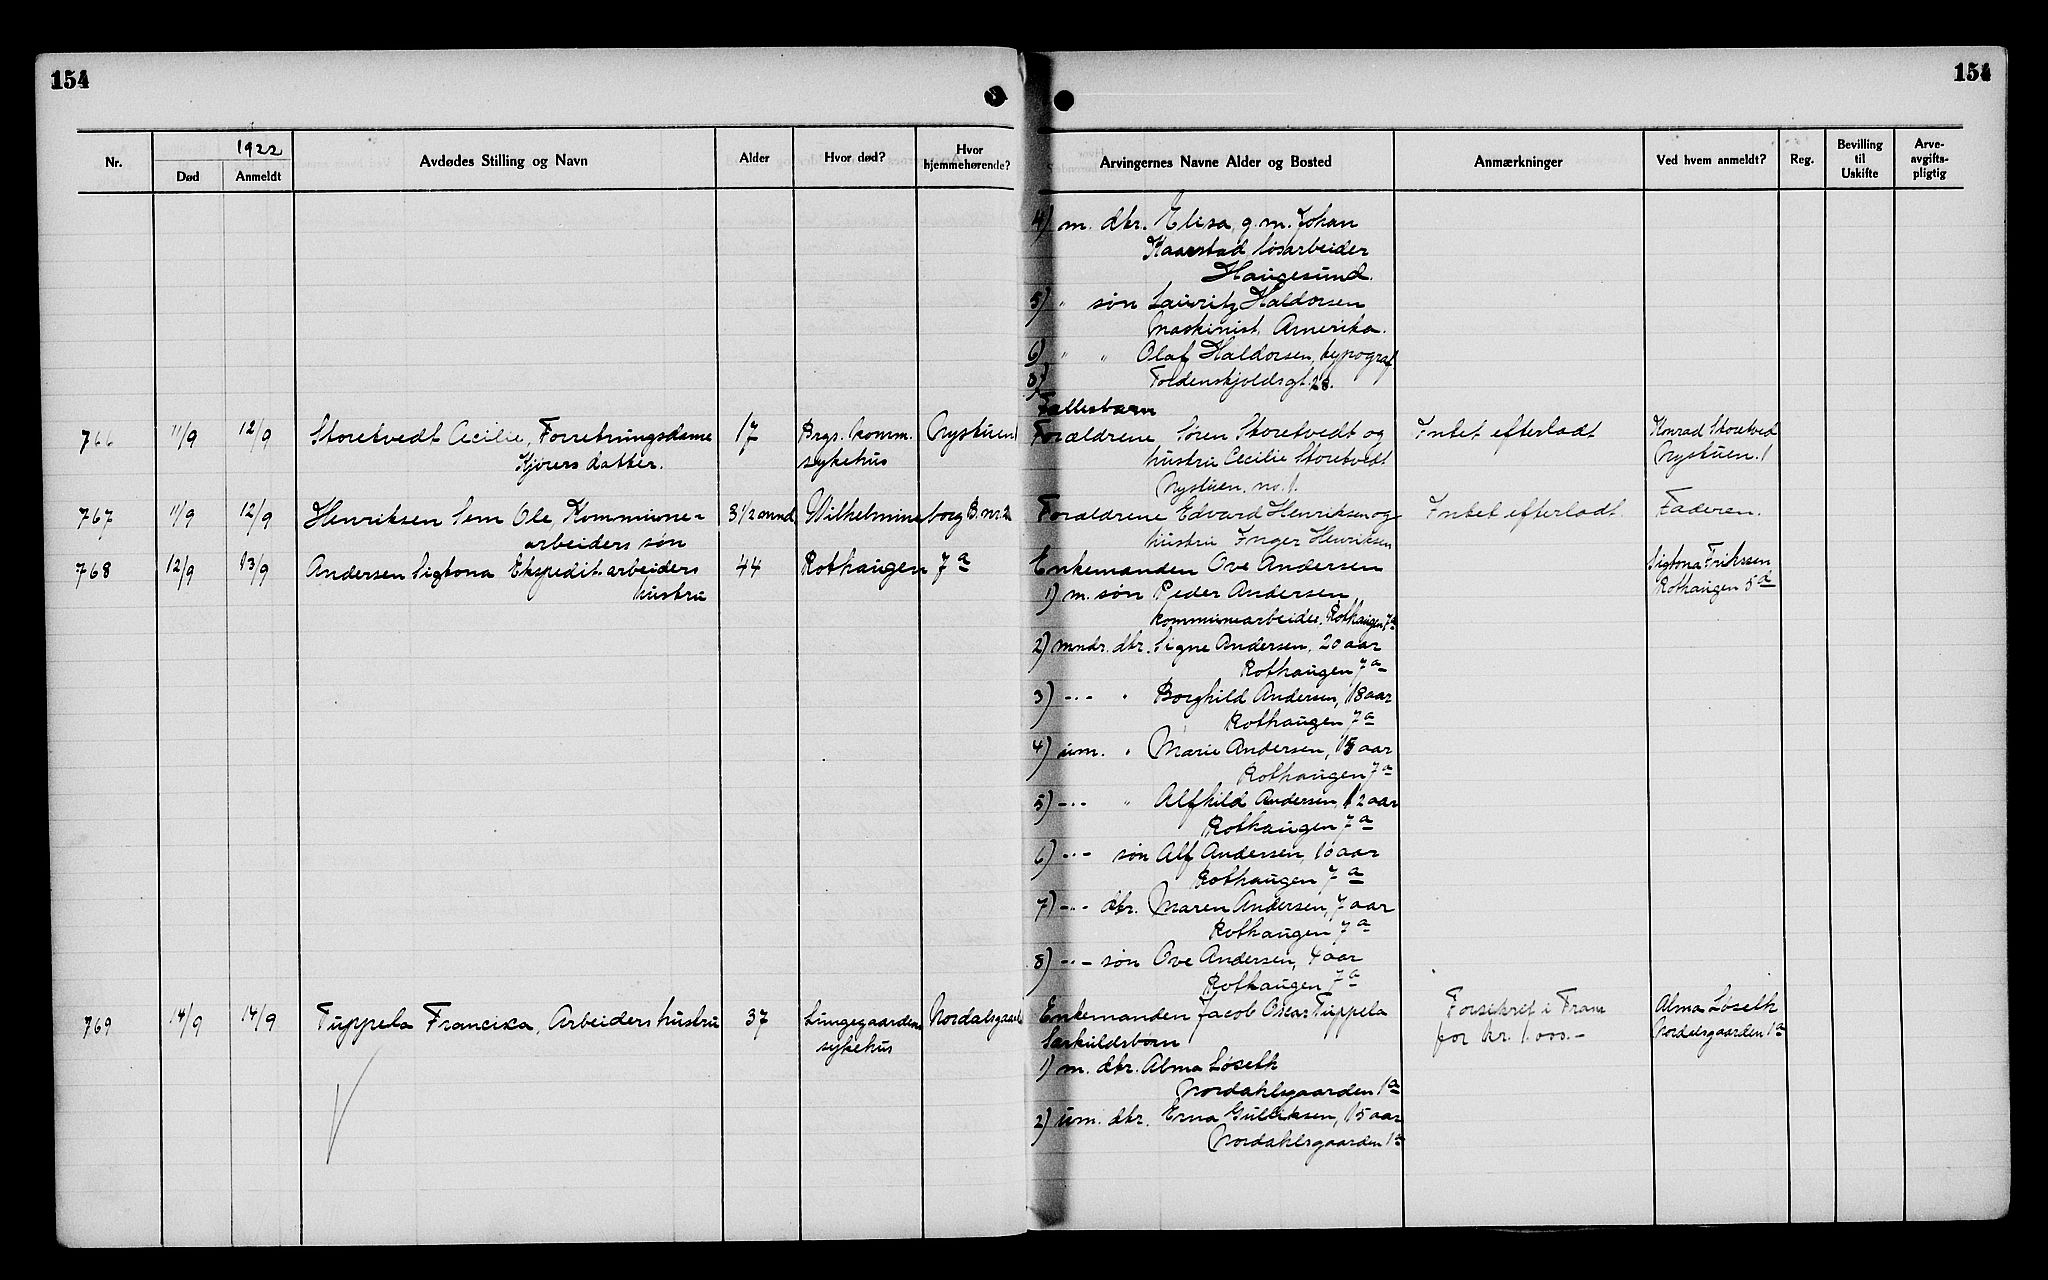 154
154
1922
Nr.
Død
Anmeldt
Avdødes Stilling og Navn
Alder
Hvor død?
Hvor
hjemmehørende?
Arvingernes Navne Alder og Bosted
Anmærkninger
Ved hvem anmeldt?
Reg.
Bevilling
til
Uskifte
Arve-
avgifts-
pligtig
4) m. dtr. Elisa, g.m. Johan
Kaarstad, løsarbeider
Haugesund.
5) " søn Lauritz Haldorsen
Maskinist, Amerika.
6) " " Olaf Haldorsen, typograf
Tordenskjoldsgt. 28.
Fællesbarn
766 11/9 12/9 Storetvedt Cecilie, Forretningsdame 17 Brgs. komm. Nystuen 1 Forældrene Søren Storetvedt og Intet efterladt Konrad Storetvedt
Kjørers datter. sykehus hustru Cecilie Storetvedt Nystuen. 1
Nystuen no. 1.
767 11/9 12/9 Henriksen Sem Ole, Kommune- 3 1/2 mnd Wilhelmineborg B. nr. 2 Forældrene Edvard Henriksen og Intet efterladt Faderen.
arbeiders søn hustru Inger Henriksen
768 12/9 13/9 Andersen Sigtona Ekspedit. arbeiders 44 Rothaugen 7a Enkemanden Ove Andersen Sigtona Eriksen
hustru 1) m. søn Peder Andersen Rothaugen 5a
kommunearbeider, Rothaugen 7a
2) mndr. dtr. Signe Andersen, 20 aar
Rothaugen 7a
3) -"- " Borghild Andersen, 18 aar
Rothaugen 7a
4) um. " Marie Andersen, 15 aar
Rothaugen 7a
5) -"- " Alfhild Andersen, 12 aar
Rothaugen 7a
6) -"- søn Alf Andersen, 10 aar
Rothaugen 7a
7) -"- dtr. Maren Andersen, 7 aar
Rothaugen 7a
8) -"- søn Ove Andersen, 4 aar
Rothaugen 7a
769 14/9 14/9 Tuppela Franciska, Arbeiders hustru 37 Lungegaardens Nordalsgaard Enkemanden Jacob Oscar Tuppela Forsikret i Fram Alma Løseth
sykehus Særkuldsbørn for kr. 1.000.- Nordalsgaarden 1a
1) m. dtr. Alma Løseth
Nordahlsgaarden 1a
2) um. dtr. Erna Gulliksen, 15 aar
Nordahlsgaarden 1a